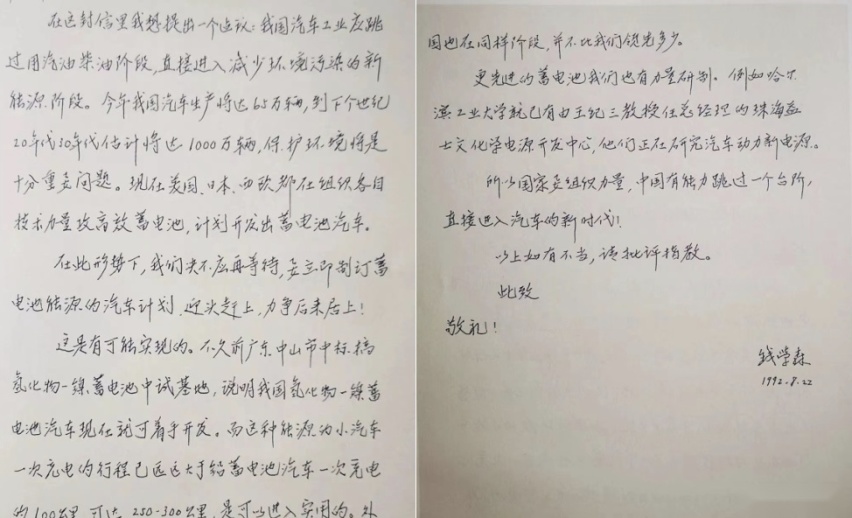 在这封信里我想提出一个建议：我国汽车工业应跳
过用汽油柴油阶段，直接进入减少环境污染的新
能源阶段。今年我国汽车生产将达65万辆，到下个世纪
20年代30年代估计将达1000万辆，保护环境将是
十分重要问题。现在美国、日本、西欧都在组织各自
技术力量攻高效蓄电池，计划开发出蓄电池汽车。
在此形势下，我们决不应再等待，要立即制订蓄
电池能源的汽车计划，迎头赶上，力争后来居上！
这是有可能实现的。不久前广东中山市中标搞
氢化物—镍蓄电池中试基地，说明我国氢化物—镍蓄
电池汽车现在就可着手开发。而这种能源为小汽车
一次充电的行程已远远大于铅蓄电池汽车一次充电
的100公里，可达250-300公里，是可以进入实用的。外
国也在同样阶段，并不比我们领先多少。
更先进的蓄电池我们也有力量研制。例如哈尔
滨工业大学就已有由王纪三教授任总经理的珠海益
士文化学电源开发中心，他们正在研究汽车动力新电源。
所以国家要组织力量，中国有能力跳过一个台阶，
直接进入汽车的新时代！
以上如有不当，请批评指教。
此致
敬礼！
钱学森
1992.8.22